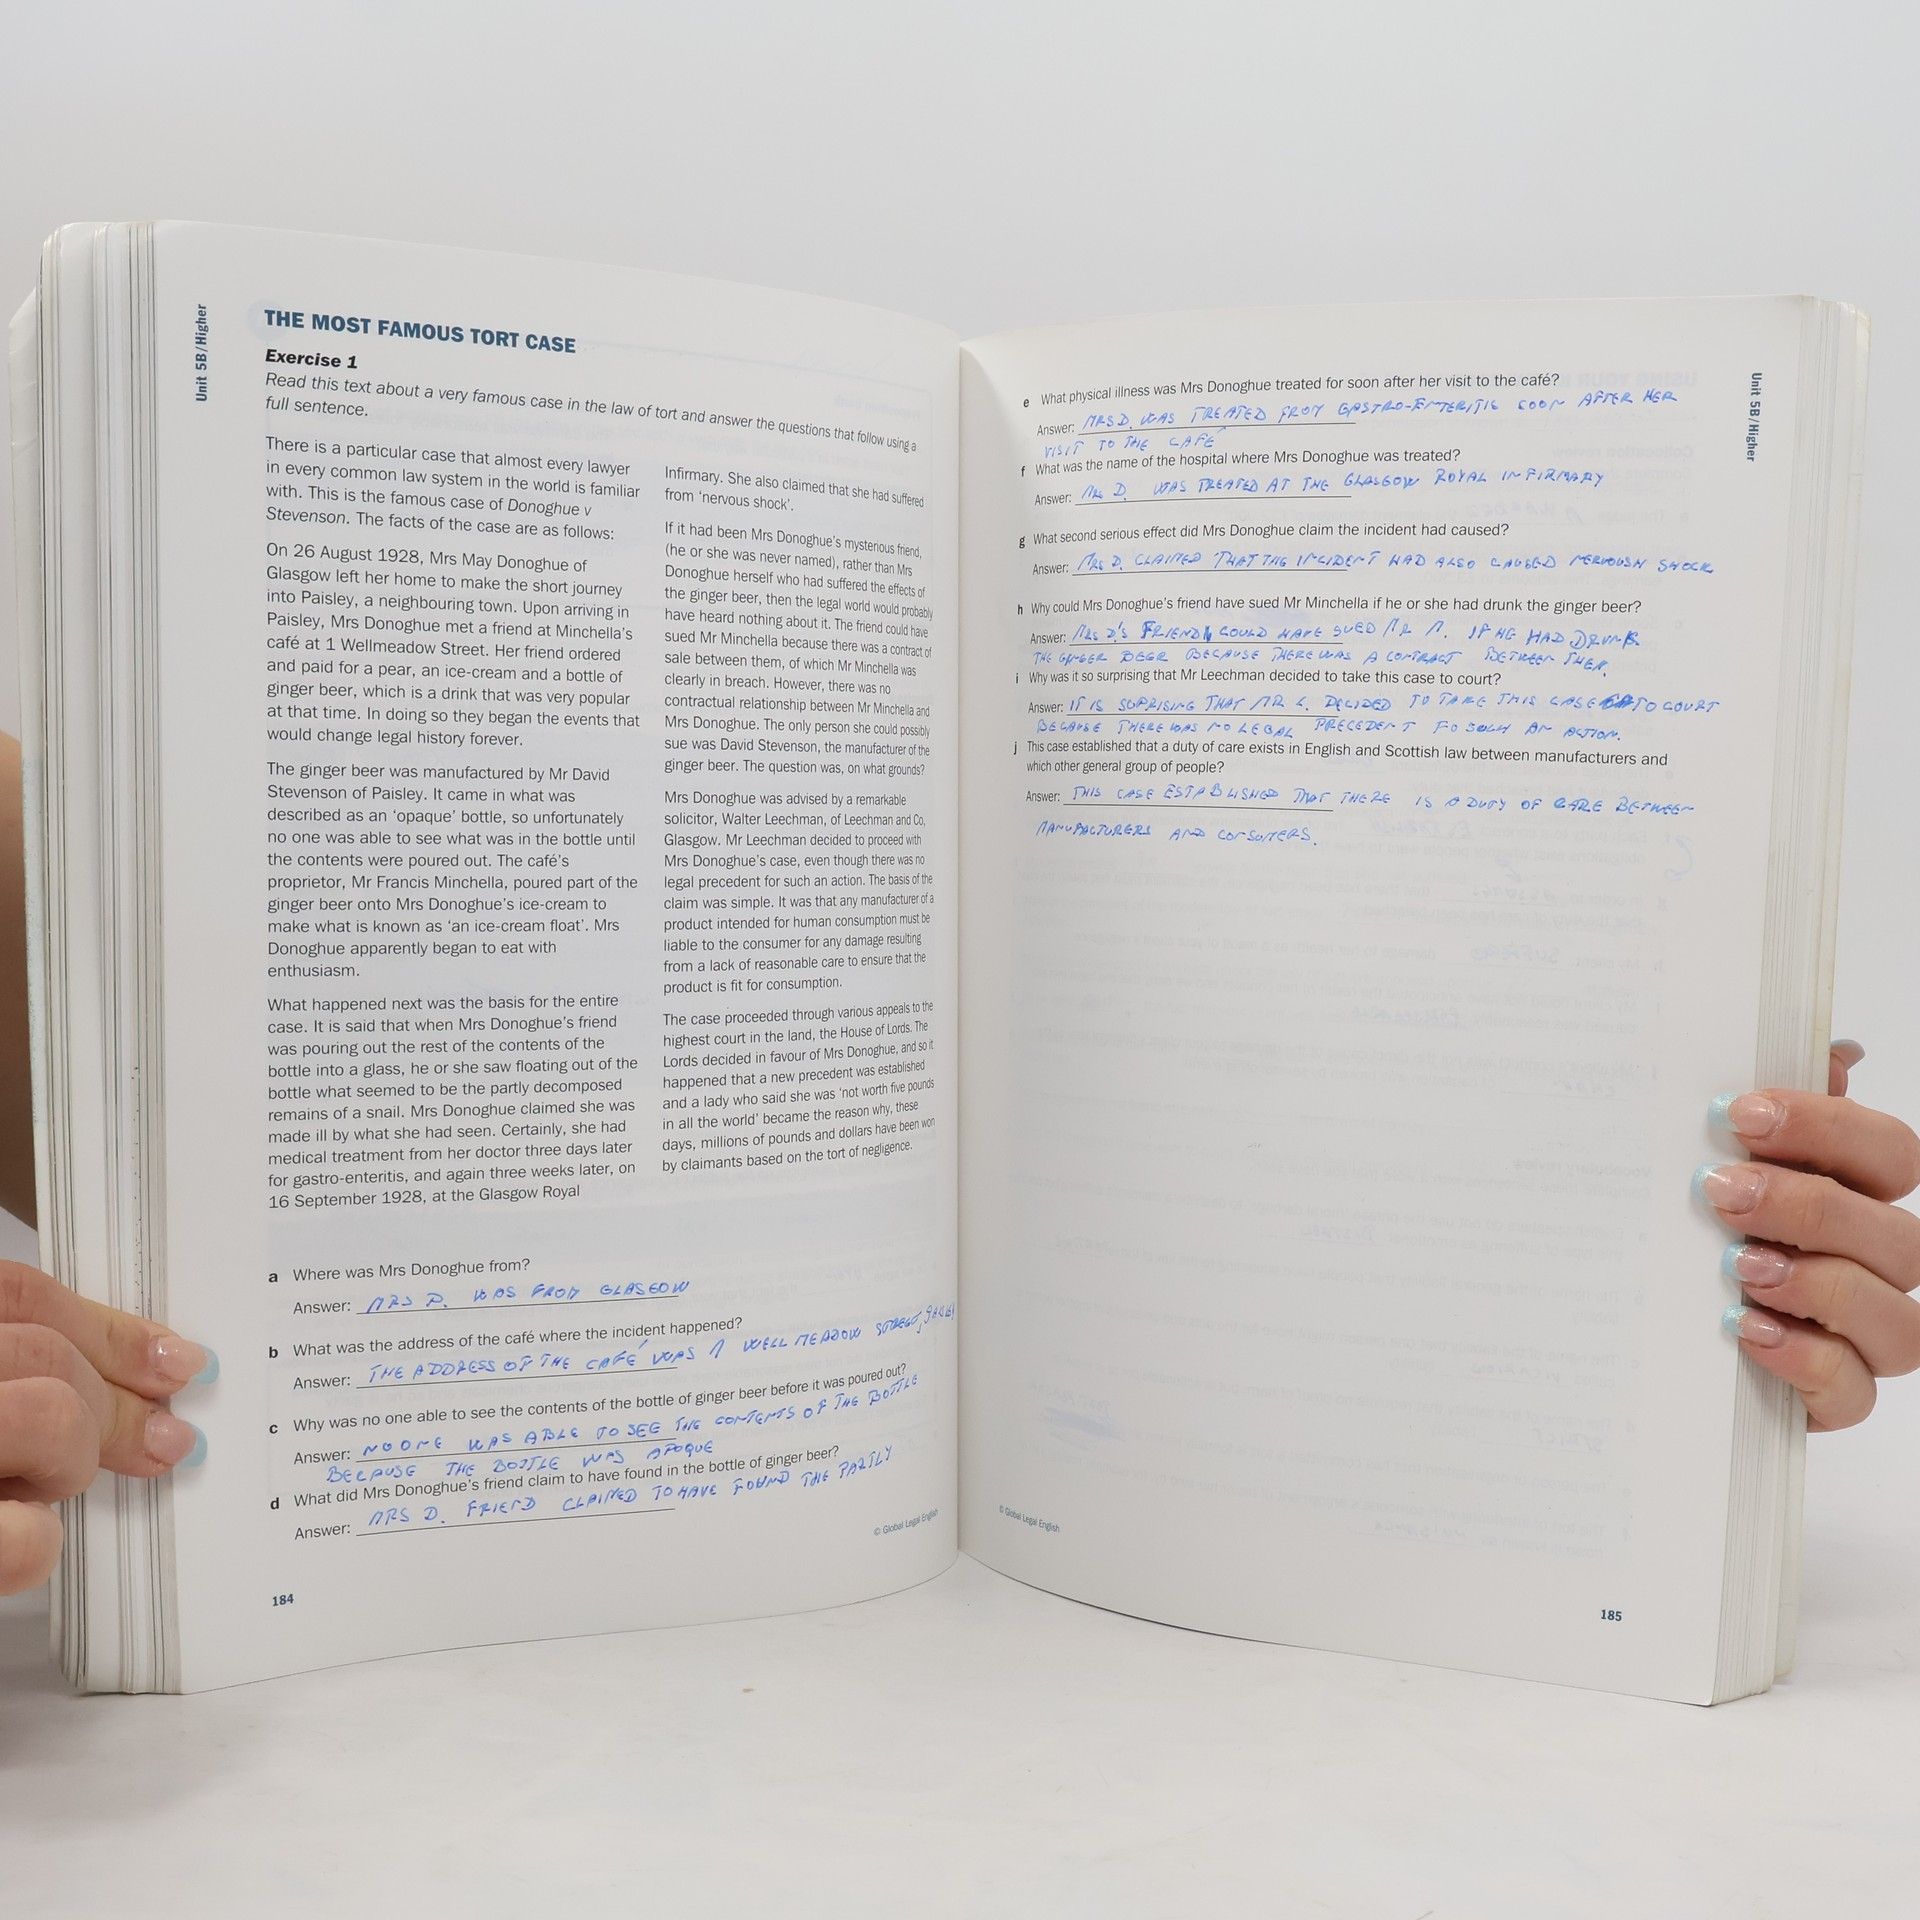 Unit 5B/Higher
THE MOST FAMOUS TORT CASE
Exercise 1
Read this text about a very famous case in the law of tort and answer the questions that follow using a
full sentence.
There is a particular case that almost every lawyer
in every common law system in the world is familiar
with. This is the famous case of Donoghue v
Stevenson. The facts of the case are as follows:
On 26 August 1928, Mrs May Donoghue of
Glasgow left her home to make the short journey
into Paisley, a neighbouring town. Upon arriving in
Paisley, Mrs Donoghue met a friend at Minchella's
café at 1 Wellmeadow Street. Her friend ordered
and paid for a pear, an ice-cream and a bottle of
ginger beer, which is a drink that was very popular
at that time. In doing so they began the events that
would change legal history forever.
The ginger beer was manufactured by Mr David
Stevenson of Paisley. It came in what was
described as an 'opaque' bottle, so unfortunately
no one was able to see what was in the bottle until
the contents were poured out. The café's
proprietor, Mr Francis Minchella, poured part of the
ginger beer onto Mrs Donoghue's ice-cream to
make what is known as 'an ice-cream float'. Mrs
Donoghue apparently began to eat with
enthusiasm.
What happened next was the basis for the entire
case. It is said that when Mrs Donoghue's friend
was pouring out the rest of the contents of the
bottle into a glass, he or she saw floating out of the
bottle what seemed to be the partly decomposed
remains of a snail. Mrs Donoghue claimed she was
made ill by what she had seen. Certainly, she had
medical treatment from her doctor three days later
for gastro-enteritis, and again three weeks later, on
16 September 1928, at the Glasgow Royal
Infirmary. She also claimed that she had suffered
from 'nervous shock'.
If it had been Mrs Donoghue's mysterious friend,
(he or she was never named), rather than Mrs
Donoghue herself who had suffered the effects of
the ginger beer, then the legal world would probably
have heard nothing about it. The friend could have
sued Mr Minchella because there was a contract of
sale between them, of which Mr Minchella was
clearly in breach. However, there was no
contractual relationship between Mr Minchella and
Mrs Donoghue. The only person she could possibly
sue was David Stevenson, the manufacturer of the
ginger beer. The question was, on what grounds?
Mrs Donoghue was advised by a remarkable
solicitor, Walter Leechman, of Leechman and Co,
Glasgow. Mr Leechman decided to proceed with
Mrs Donoghue's case, even though there was no
legal precedent for such an action. The basis of the
claim was simple. It was that any manufacturer of a
product intended for human consumption must be
liable to the consumer for any damage resulting
from a lack of reasonable care to ensure that the
product is fit for consumption.
The case proceeded through various appeals to the
highest court in the land, the House of Lords. The
Lords decided in favour of Mrs Donoghue, and so it
happened that a new precedent was established
and a lady who said she was 'not worth five pounds
in all the world' became the reason why, these
days, millions of pounds and dollars have been won
by claimants based on the tort of negligence.
a Where was Mrs Donoghue from?
Answer: MRS D. WAS FROM GLASGOW
b What was the address of the café where the incident happened?
Answer: THE ADDRESS OF THE CAFÉ WAS 1 WELLMEADOW STREET,
c Why was no one able to see the contents of the bottle of ginger beer before it was poured out?
Answer: NO ONE WAS ABLE TO SEE THE CONTENTS OF THE BOTTLE
BECAUSE THE BOTTLE WAS APOQUE
d What did Mrs Donoghue's friend claim to have found in the bottle of ginger beer?
Answer: MRS D. FRIEND CLAIMED TO HAVE FOUND THE PARTLY
© Global Legal English
184
Unit 5B/Higher
e What physical illness was Mrs Donoghue treated for soon after her visit to the café?
Answer: MRS D. WAS TREATED FROM GASTRO-ENTERITIS SOON AFTER HER
VISIT TO THE CAFÉ
f What was the name of the hospital where Mrs Donoghue was treated?
Answer: MRS D. WAS TREATED AT THE GLASGOW ROYAL INFIRMARY
g What second serious effect did Mrs Donoghue claim the incident had caused?
Answer: MRS D. CLAIMED THAT THE INCIDENT HAD ALSO CAUSED SHOCK
h Why could Mrs Donoghue's friend have sued Mr Minchella if he or she had drunk the ginger beer?
Answer: MRS D.'S FRIEND COULD HAVE SUED MR M. IF HE HAD DRUNK
THE GINGER BEER BECAUSE THERE WAS A CONTRACT BETWEEN THEM.
i Why was it so surprising that Mr Leechman decided to take this case to court?
Answer: IT IS SUPRISING THAT MR L. DECIDED TO TAKE THIS CASE TO COURT
BECAUSE THERE WAS NO LEGAL PRECEDENT FO SUCH AN ACTION.
j This case established that a duty of care exists in English and Scottish law between manufacturers and
which other general group of people?
Answer: THIS CASE ESTABLISHED THAT THERE IS A DUTY OF CARE BETWEEN
MANUFACTURERS AND CONSUMERS.
© Global Legal English
185